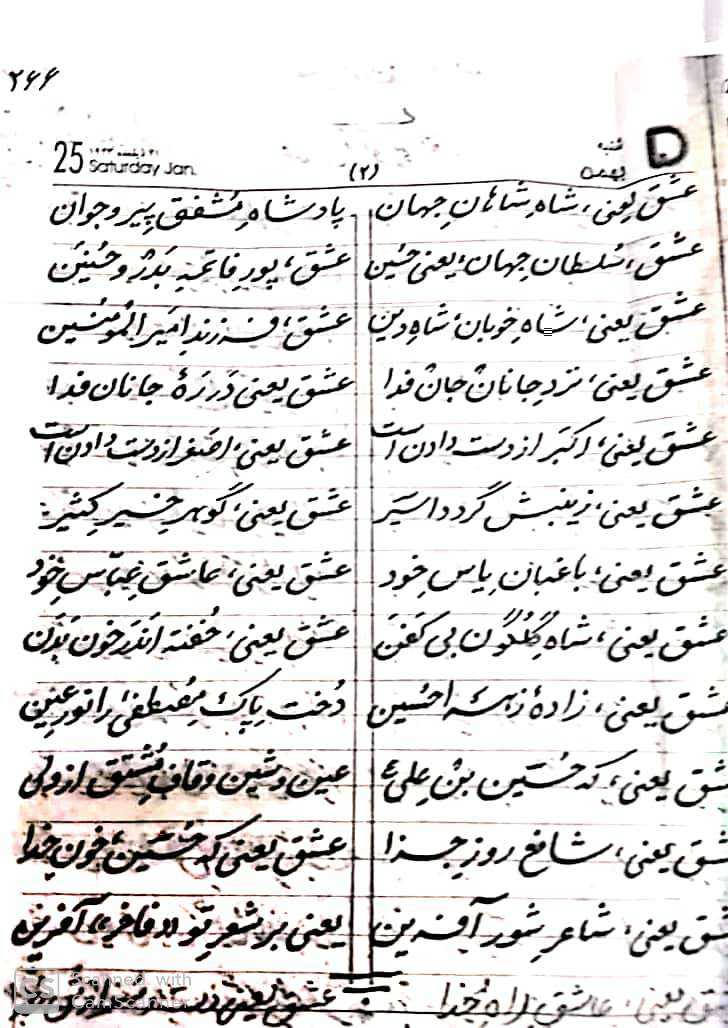 ۲۶۶
25 Saturday Jan. (۲) شنبه بهمن D
عشق یعنی، شاهِ شاهانِ جهان پادشاهِ مُشفقِ پیر و جوان
عشق، سُلطانِ جهان، یعنی حُسَین عشق، پورِ فاتحِ بَدْر و حُنَین
عشق یعنی، شاهِ خوبان، شاهِ دین عشق، فرزندِ امیرالمُؤمنین
عشق یعنی، نزدِ جانان جان فدا عشق یعنی در رَهِ جانان فدا
عشق یعنی، اکبر از دست دادن است عشق یعنی، اصغر از دست دادن است
عشق یعنی، زینبش گردد اسیر عشق یعنی، گوهرِ خیرِ کثیر
عشق یعنی، باغبانِ یاسِ خود عشق یعنی، عاشقِ عباسِ خود
عشق یعنی، شاهِ گلگون بی کفَن عشق یعنی، خفته اندر خون بدَن
عشق یعنی، زادهٔ زهرا حُسین دُختِ پاکِ مصطفیٰ را نورِ عین
عشق یعنی، که حُسَین بن علی عین و شین و قافِ مُشتق از ولی
عشق یعنی، شافعِ روزِ جزا عشق یعنی که حُسَین، خونِ خدا
عشق یعنی، شاعرِ شور آفرین یعنی بر شعرِ تو «فاخر» آفرین
عشق یعنی، عاشقِ راهِ خُدا عشق یعنی
Scanned with
CamScanner